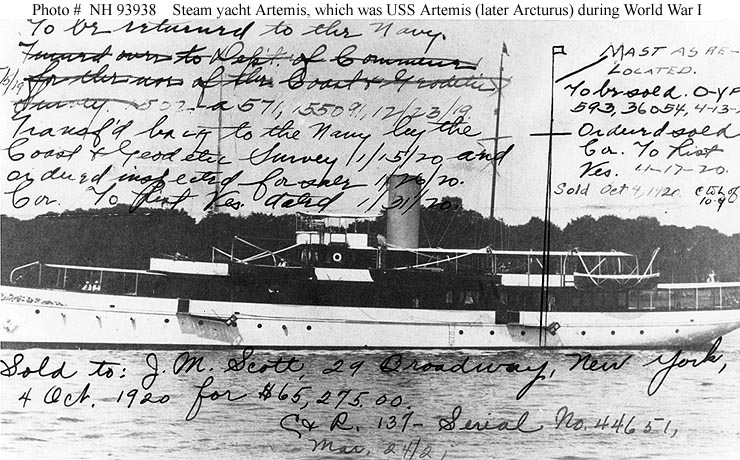 Photo # NH 93938 Steam yacht Artemis, which was USS Artemis (later Arcturus) during World War I
To be returned to the Navy.
Turned over to Dept. of Commerce
for the use of the Coast & Geodetic
Survey. 502- a 571, 15509, 12/23/19.
Transf'd back to the Navy by the
Coast & Geodetic Survey 1/15/20, and
ordered inspected for sale 1/26/20.
Cor. To Hist Ves. dated 1/31/20.
MAST AS RE-
LOCATED.
To be sold. O-
593, 36054, 4-13-
Ordered sold
Cor. To Hist
Ves. 11-17-20.
Sold Oct 4, 1920
10-9
Sold to: J. M. Scott, 29 Broadway, New York,
4 Oct. 1920 for $65,275.00.
C & R. 137- Serial No. 44651,
Mar. 24/21,